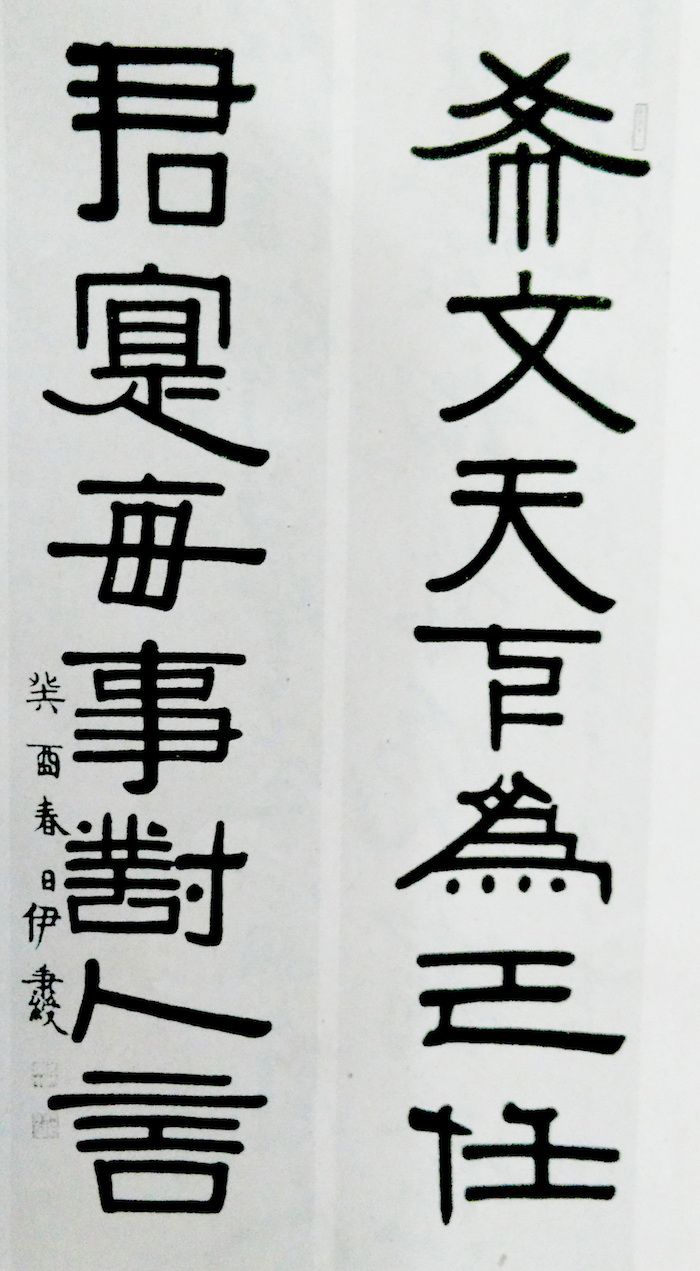 希文天下爲己任
君寔每事對人言
癸酉春日伊秉綬